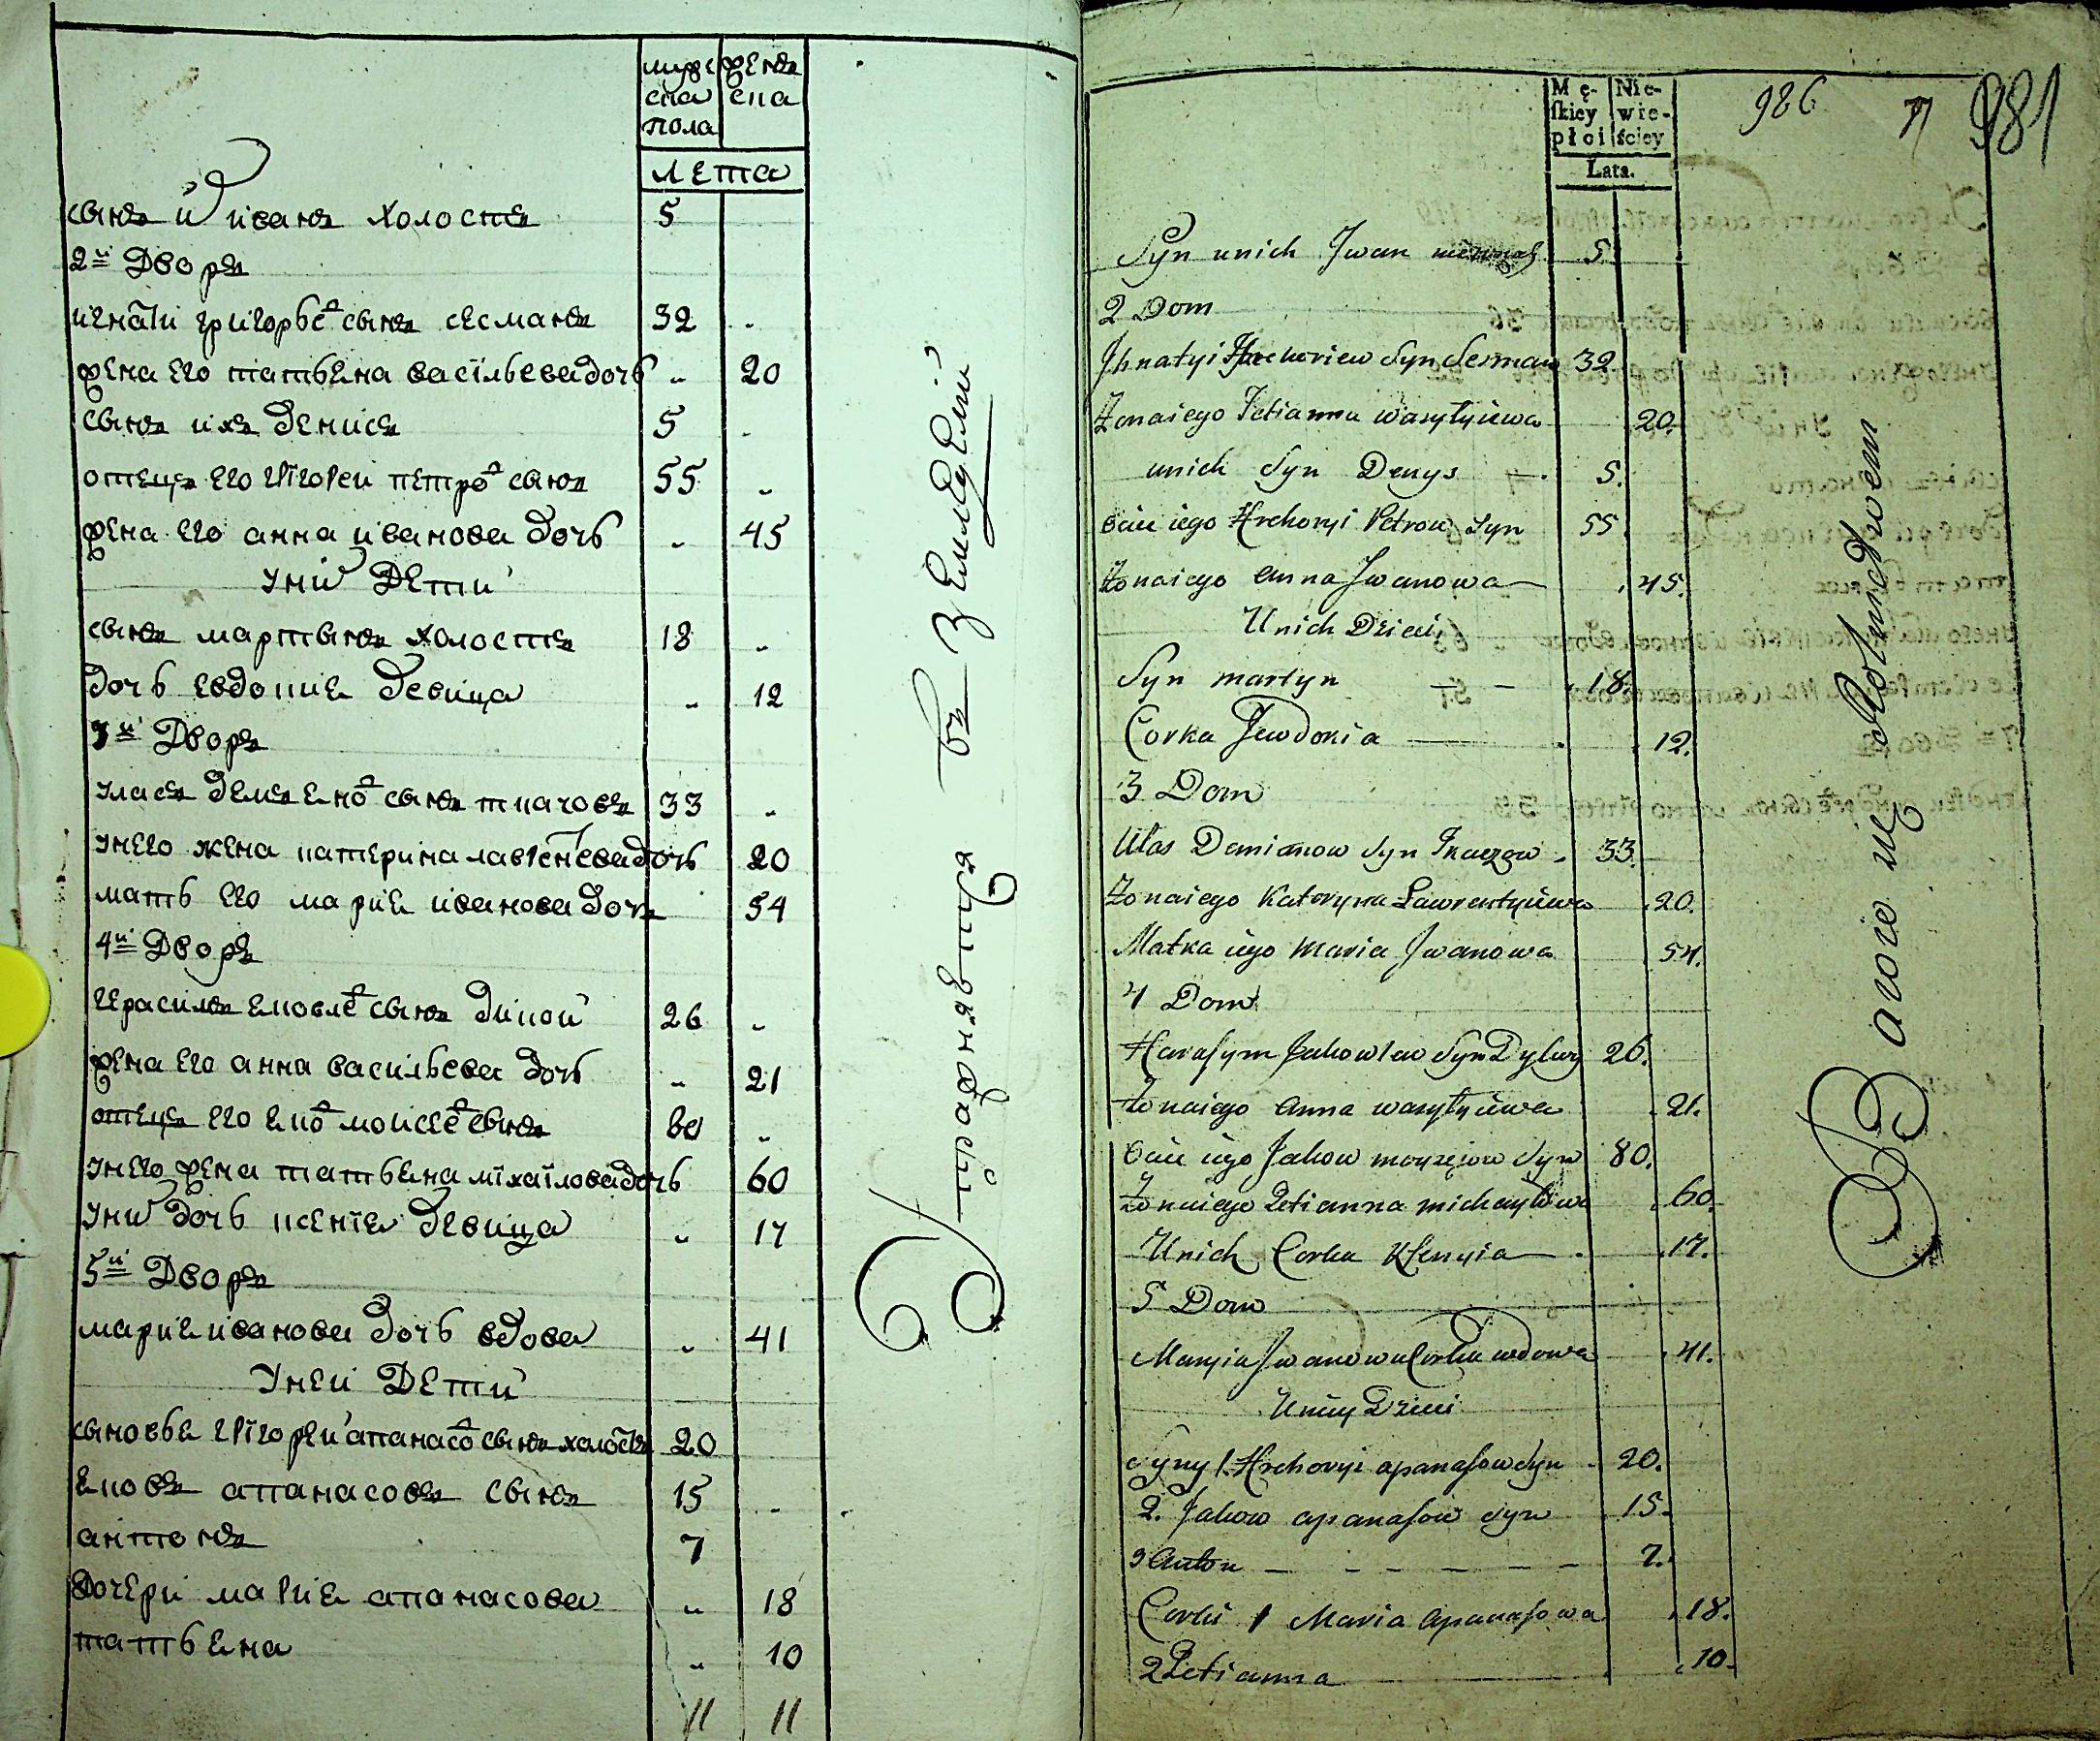 мужс женс
ска ска
пола
лета
сынъ и иванъ холостъ 5
2й Дворъ
игнатй григорьев сынъ сесманъ 32 "
жена его татьяна васильева дочь " 20
сынъ ихъ денисъ 5 "
отецъ его григорей петров сынъ 55 "
жена его анна иванова дочь " 45
у ни Дети
сынъ мартынъ холостъ 18 "
дочь евдокия девица " 12
3й Дворъ
уласъ демъянов сынъ ткачовъ 33 "
у него жена катерина лаврентева дочь 20
мать его мария иванова дочъ 54
4й Дворъ
герасимъ яковле сынъ дикой 26 "
жена его анна васильева дочь " 21
отецъ его яков моисеев сынъ 80 "
у него жена татьяна михайлова дочь 60
у ни дочь ксения девица " 17
5й Дворъ
мария иванова дочь вдова " 41
У неи Дети
сыновья григорей апанасов сынъ холостъ 20
яковъ апанасовъ сынъ 15 "
антонъ 7
Дочери мария апанасова " 18
татьяна " 10
11 11
упражняются въ земледелии
986 981
Mę- Nie-
skiey wie-
płci ściey
Lata.
Syn unich Jwan 5.
2 Dom
Jhnatyi Hrehoriew Syn Sesman 32.
Żonaiego Tetianna wasyłyiewa 20.
unich Syn Denys 5.
Ociec iego Hrehoryi Petrow Syn 55
Żonaiego anna Jwanowa 45.
Unich Dzieci
Syn martyn 18.
Corka Jewdokia 12.
3 Dom
Ułas Demianow Syn Tkaczow 33.
Żonaiego Kateryna Ławrentyiewa 20.
Matka iego Maria Jwanowa 54.
4 Dom
Harasym Jakowlew Syn Dykiy 26.
Żonaiego anna wasyłyiewa 21.
Ociec iego Jakow moyseiow Syn 80.
Żonaiego Tetianna michayłowa 60.
Unich Corka Ksenyia 17.
5 Dom
Maryia Jwanowa Corka wdowa 41.
Uniey Dzieci
Syny 1. Hrehoryi apanasow Syn 20.
2. Jakow apanasow Syn 15.
3 Anton 7.
Corki 1 Maria apanasowa 18.
2 Tetianna 10.
Bawią się Rolnictwem